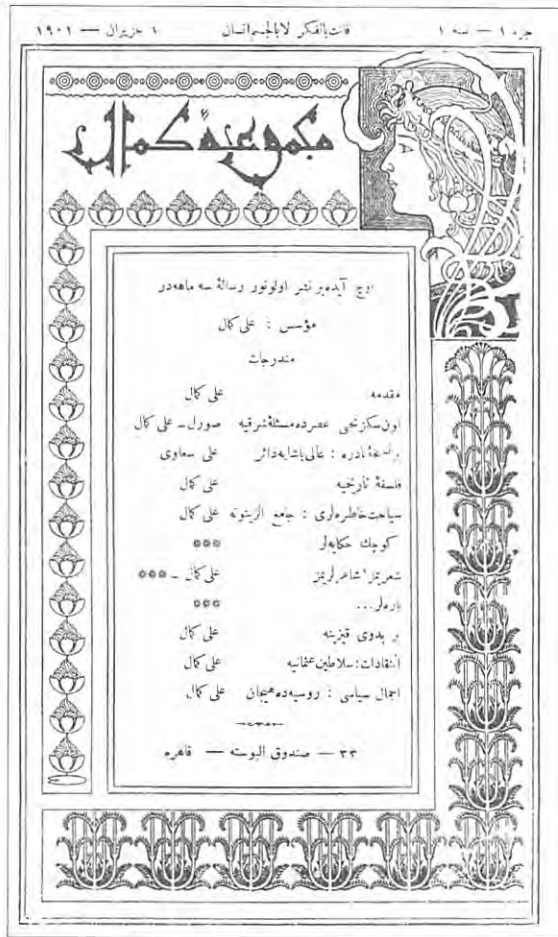 جزء ١ — سنه ١ فانت بالفكر لا بالجسم انسان ٦ حزيران — ١٩٠١
مجموعهٔ كمال
اوچ آيده بر نشر اولونور رسالهٔ سه ماهه در
مؤسس : على كمال
مندرجات
مقدمه على كمال
اون سكزنجى عصرده مسئلهٔ شرقيه صورل ــ على كمال
نادره : عالى پاشايه دائر على سعاوى
فلسفهٔ تاريخيه على كمال
سياحت خاطره لرى : جامع الزيتونه على كمال
كوچك حكايه لر ***
شعريمز، شاعرلريمز على كمال ــ ***
پاره لر... ***
بر بدوى قيزينه على كمال
انتقادات : سلاطين عثمانيه على كمال
اجمال سياسى : روسيه ده هيجان على كمال
٣٣ — صندوق البوسته — قاهره